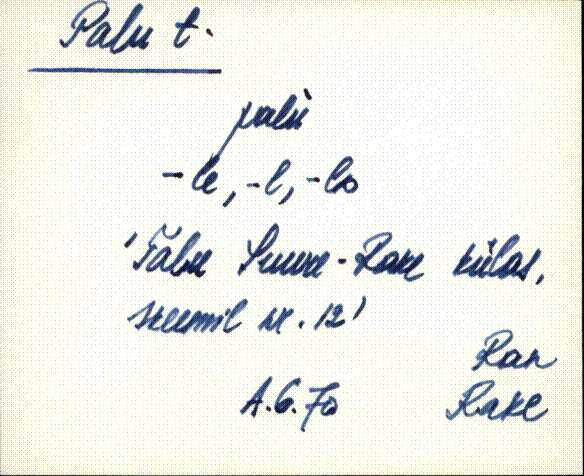 Palu t.
palù
-le, -l, -lo
'Talu Suure-Rake külas,
skeemil nr. 12'
Ran
A.G. 70 Rake